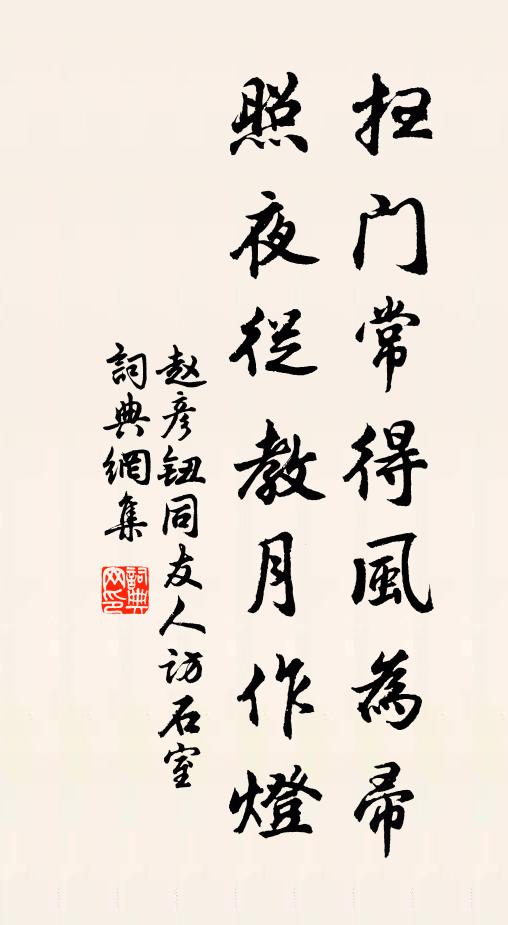 扫门常得風為帚
照夜從教月作燈
赵彦鈕同友人访石室
詞典網集
詞典
网印